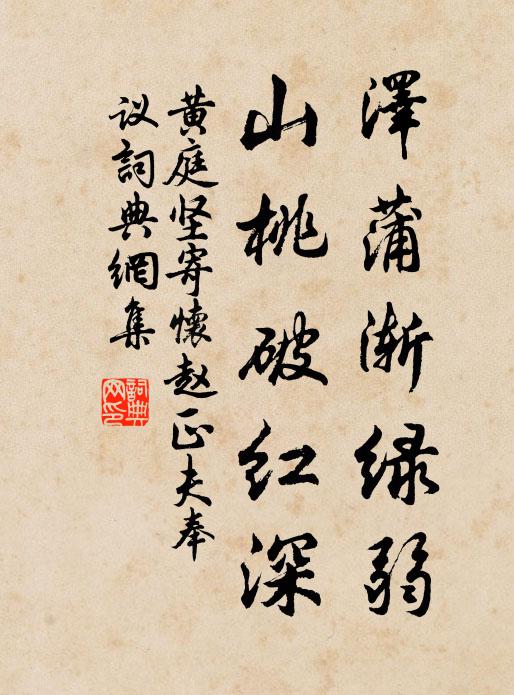 澤蒲渐绿弱
山桃破红深
黄庭坚寄懷赵正夫奉
议詞典網集
詞典网印